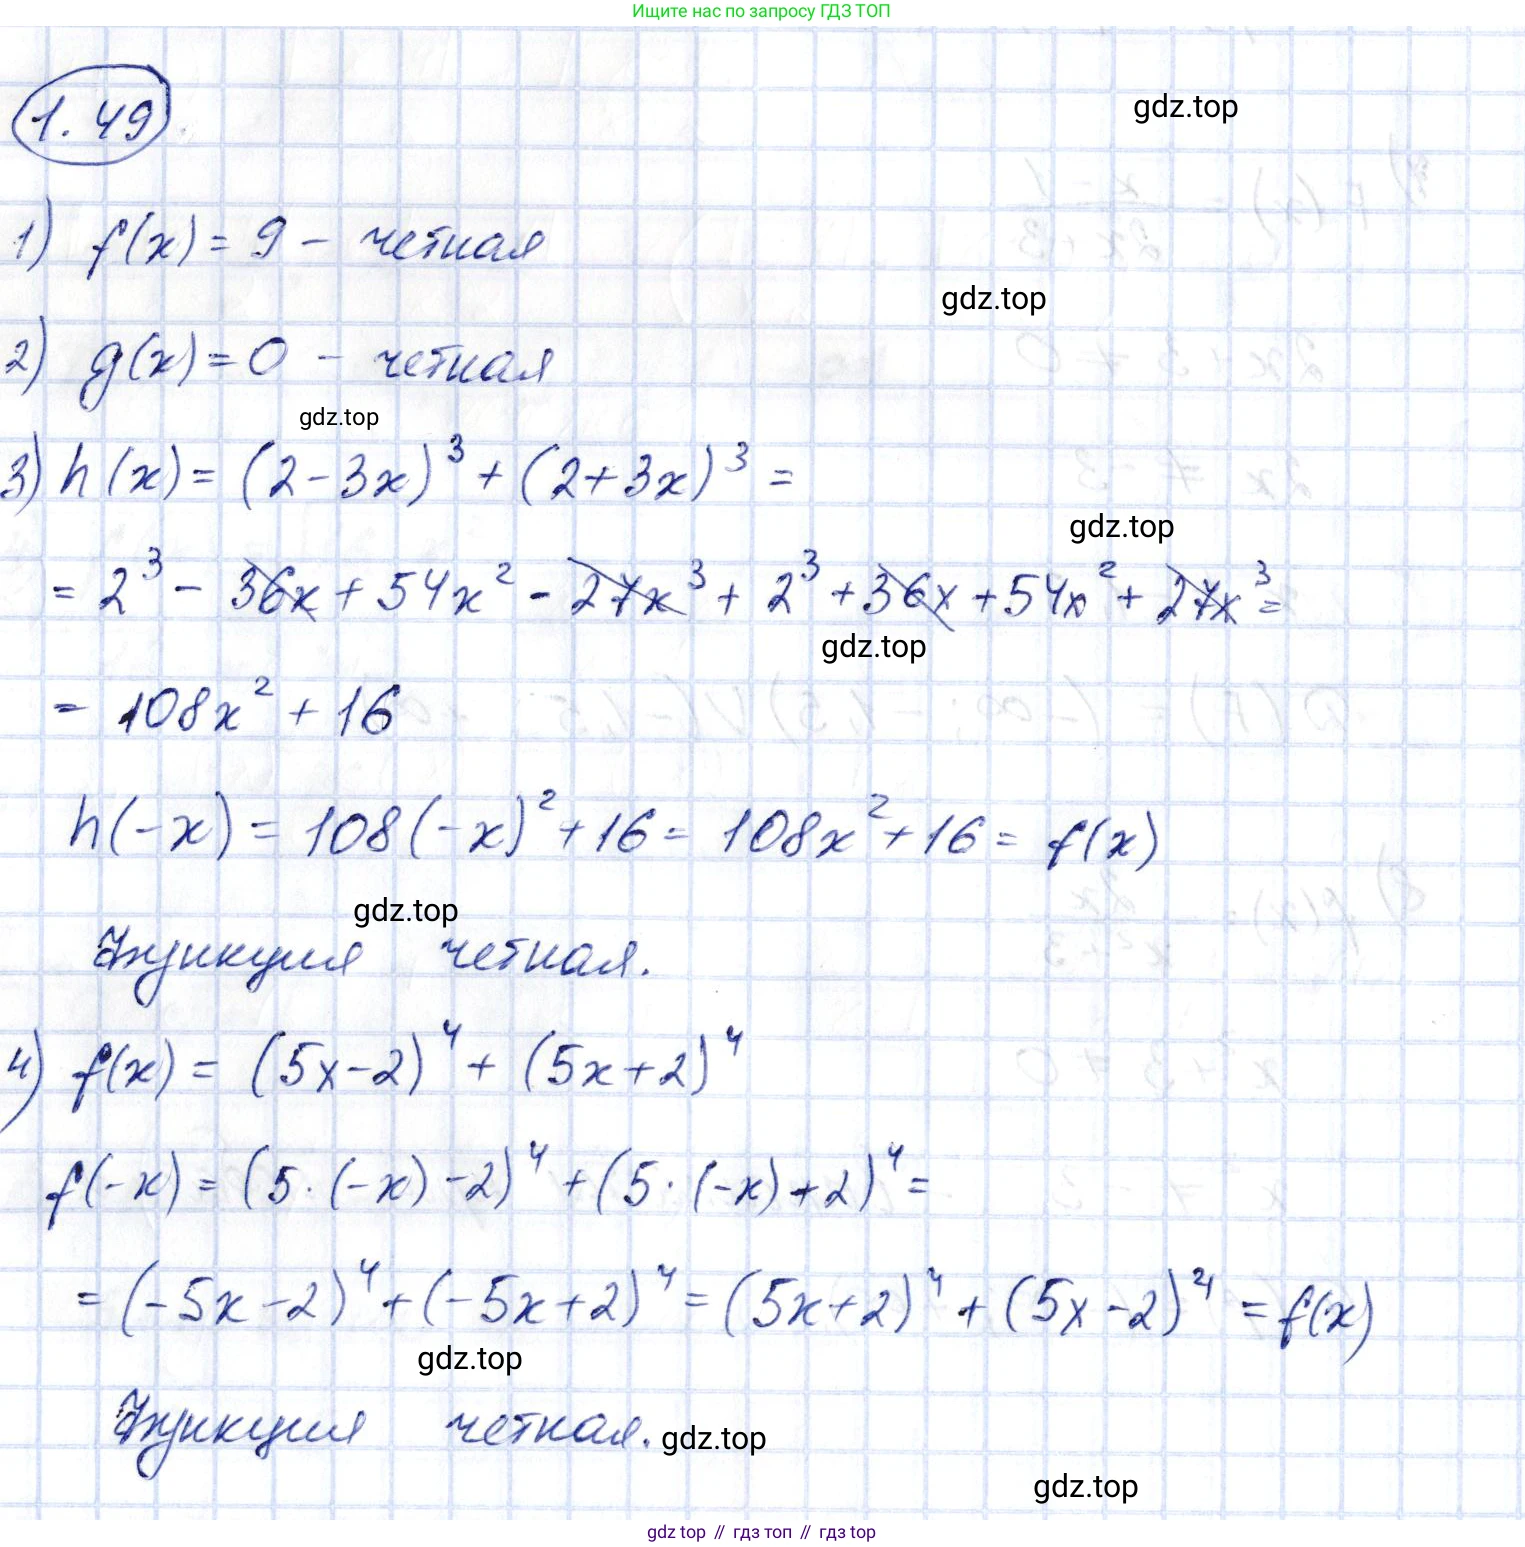 Ищите нас по запросу ГДЗ ТОП
1.49
gdz.top
1) f(x) = 9 – четная
gdz.top
2) g(x) = 0 – четная
gdz.top
3) h(x) = (2-3x)³ + (2+3x)³ =
gdz.top
= 2³ - 36x + 54x² - 27x³ + 2³ + 36x + 54x² + 27x³ =
gdz.top
= 108x² + 16
h(-x) = 108(-x)² + 16 = 108x² + 16 = f(x)
gdz.top
Функция четная.
4) f(x) = (5x-2)⁴ + (5x+2)⁴
f(-x) = (5·(-x)-2)⁴ + (5·(-x)+2)⁴ =
= (-5x-2)⁴ + (-5x+2)⁴ = (5x+2)⁴ + (5x-2)⁴ = f(x)
gdz.top
Функция четная.
gdz.top
gdz.top
gdz top // гдз топ // гдз top